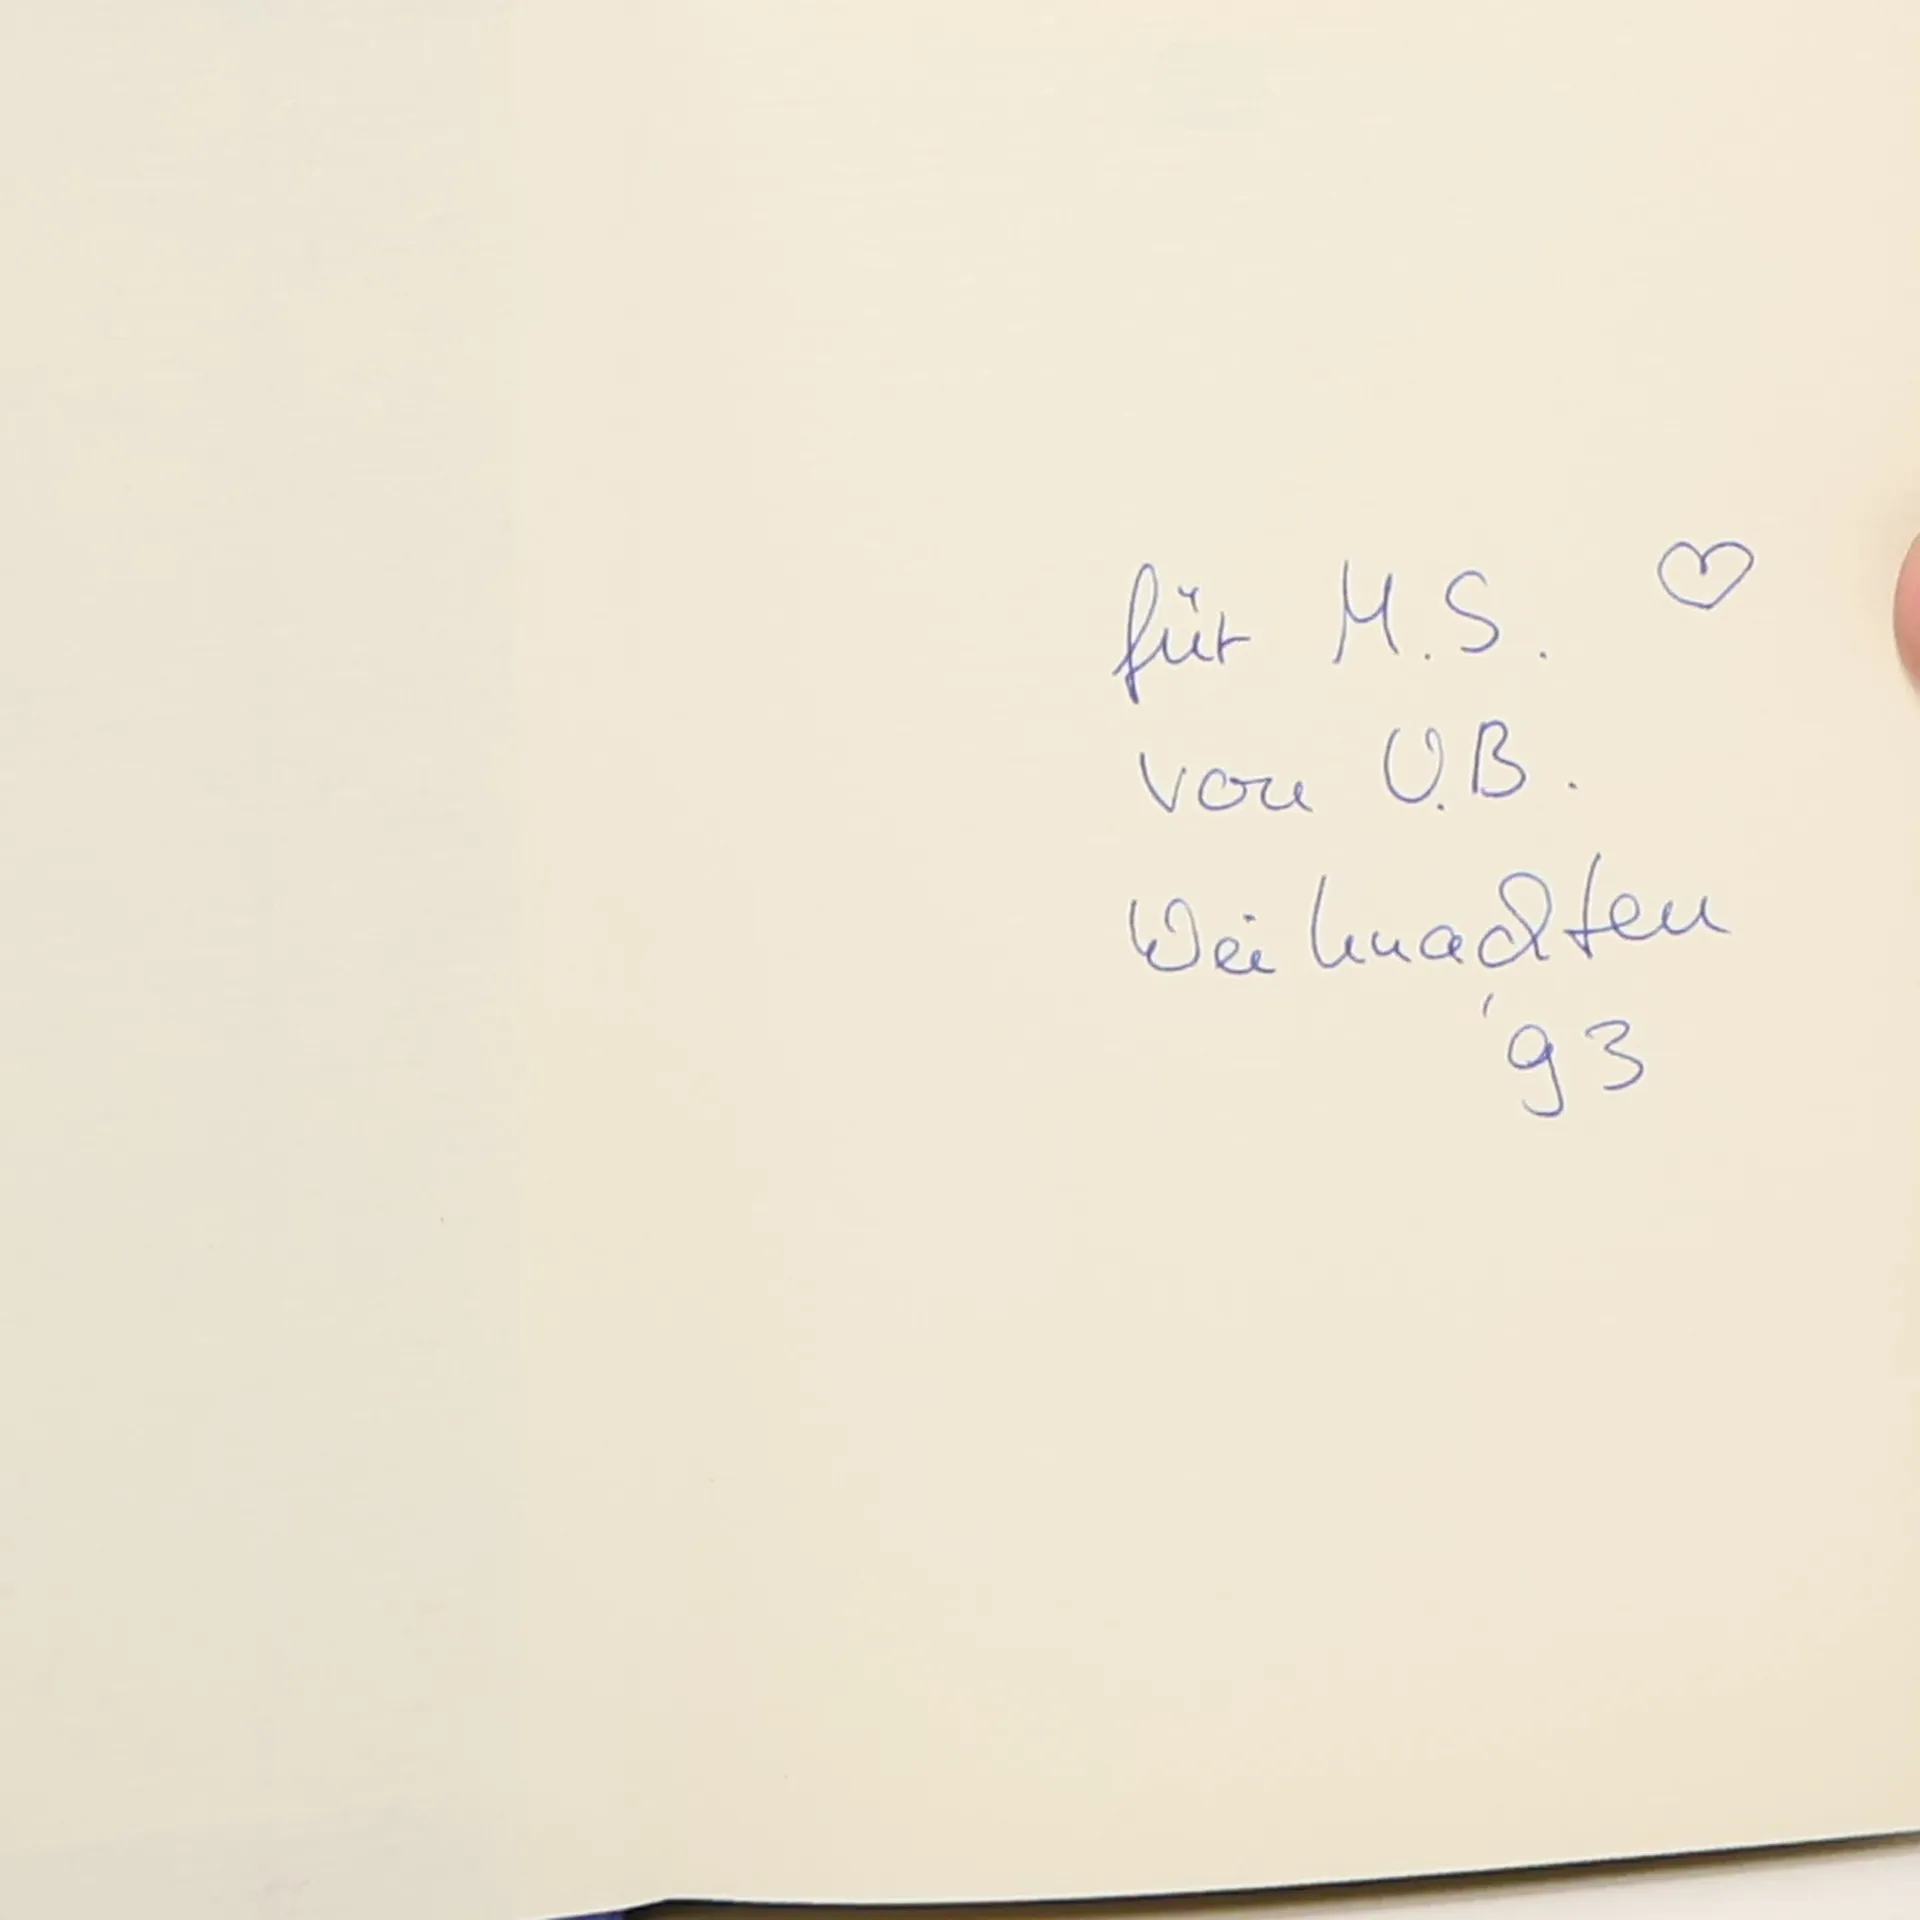 für M.S. ♡
von U.B.
Weihnachten
'93